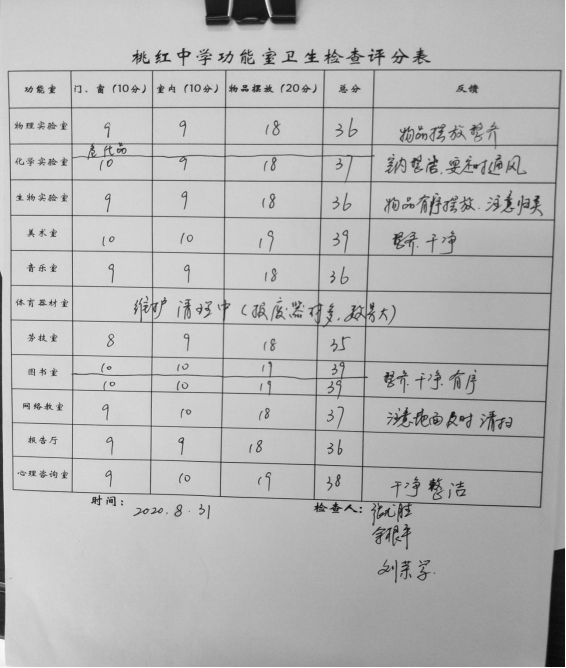 桃红中学功能室卫生检查评分表
功能室 门、窗(10分) 室内(10分) 物品摆放(20分) 总分 反馈
物理实验室 9 9 18 36 物品摆放整齐
危化品
化学实验室 10 9 18 37 室内整洁.要定时通风
生物实验室 9 9 18 36 物品有序摆放.注意归类
美术室 10 10 19 39 整齐.干净
音乐室 9 9 18 36
体育器材室 维护清理中(报废器材多,数量大)
劳技室 8 9 18 35
图书室 10 10 19 39 整齐.干净.有序
10 10 19 39
网络教室 9 10 18 37 注意地面及时清扫
报告厅 9 9 18 36
心理咨询室 9 10 19 38 干净整洁
时间: 2020.8.31 检查人:
刘荣学.